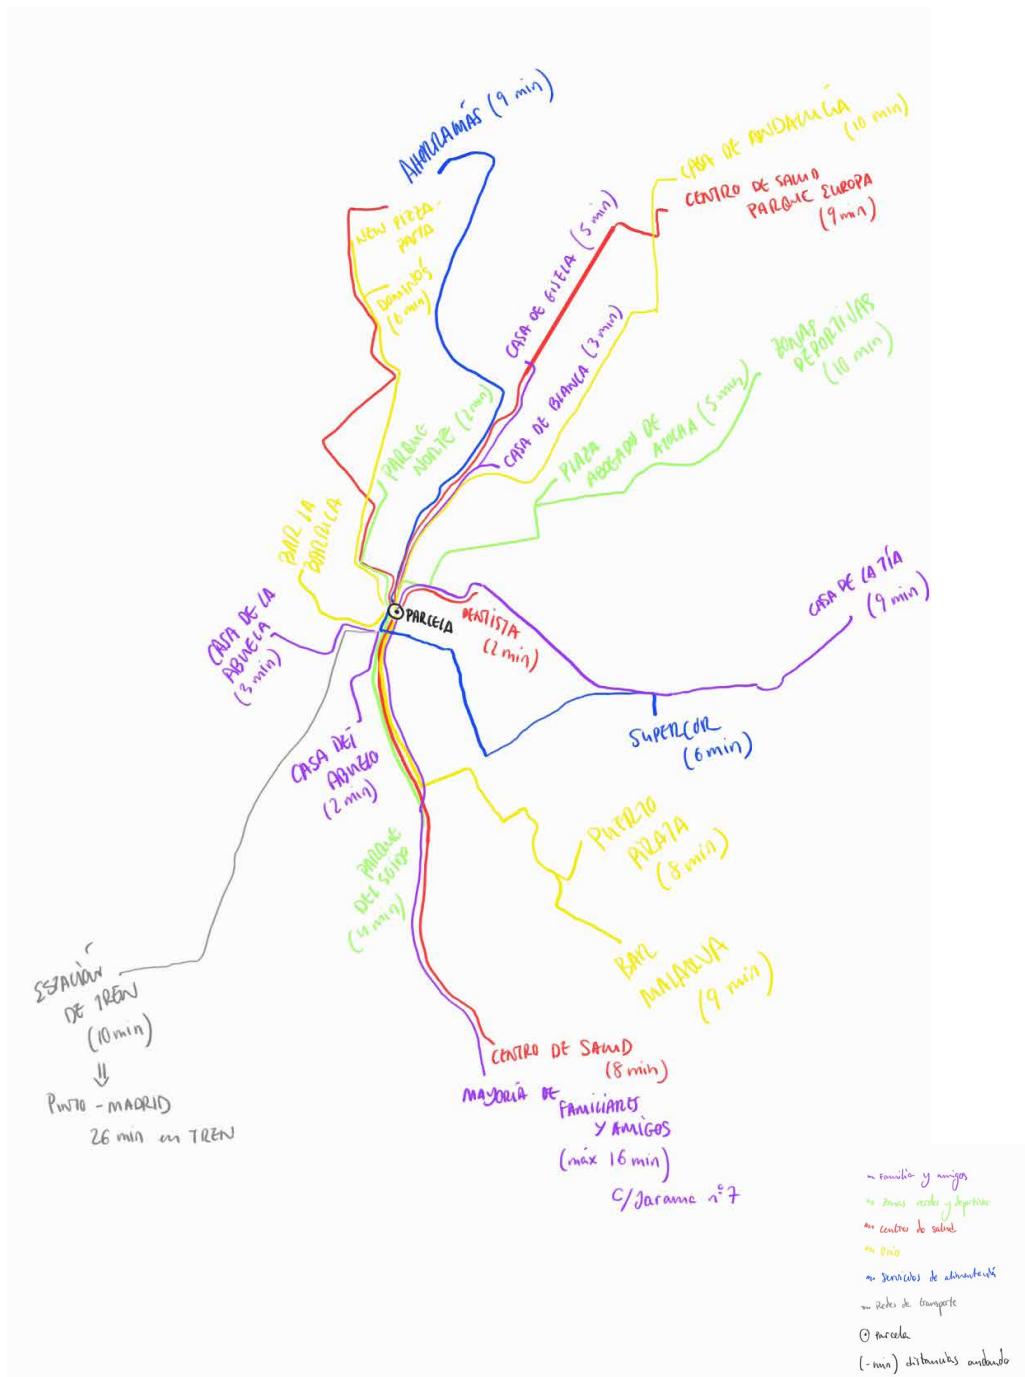 AHORRAMÁS (9 min)
CASA DE ANDALUCÍA
(10 min)
CENTRO DE SALUD
PARQUE EUROPA
(9 min)
NEW PIZZA-
PASTA
DOMINOS
(6 min)
CASA DE GISELA (5 min)
CASA DE BLANCA (3 min)
ZONAS
DEPORTIVAS
(10 min)
PARQUE
NORTE (2 min)
PLAZA
ABOGADO DE
ATOCHA (5 min)
BAR LA
BARRICA
CASA DE LA TÍA
(9 min)
CASA DE LA
ABUELA
(3 min)
PARCELA
DENTISTA
(2 min)
SUPERCOR
(6 min)
CASA DEL
ABUELO
(2 min)
PUERTO
PIRATA
(8 min)
PARQUE
DEL
(4 min)
BAR
MALAQUVA
(9 min)
ESTACIÓN
DE TREN
(10 min)
PINTO - MADRID
26 min en TREN
CENTRO DE SALUD
(8 min)
MAYORÍA DE
FAMILIARES
Y AMIGOS
(máx 16 min)
C/Jarama nº7
Familia y amigos
Zonas verdes y deportivas
Centros de salud
Ocio
Servicios de alimentación
Redes de transporte
Parcela
(-min) distancias andando